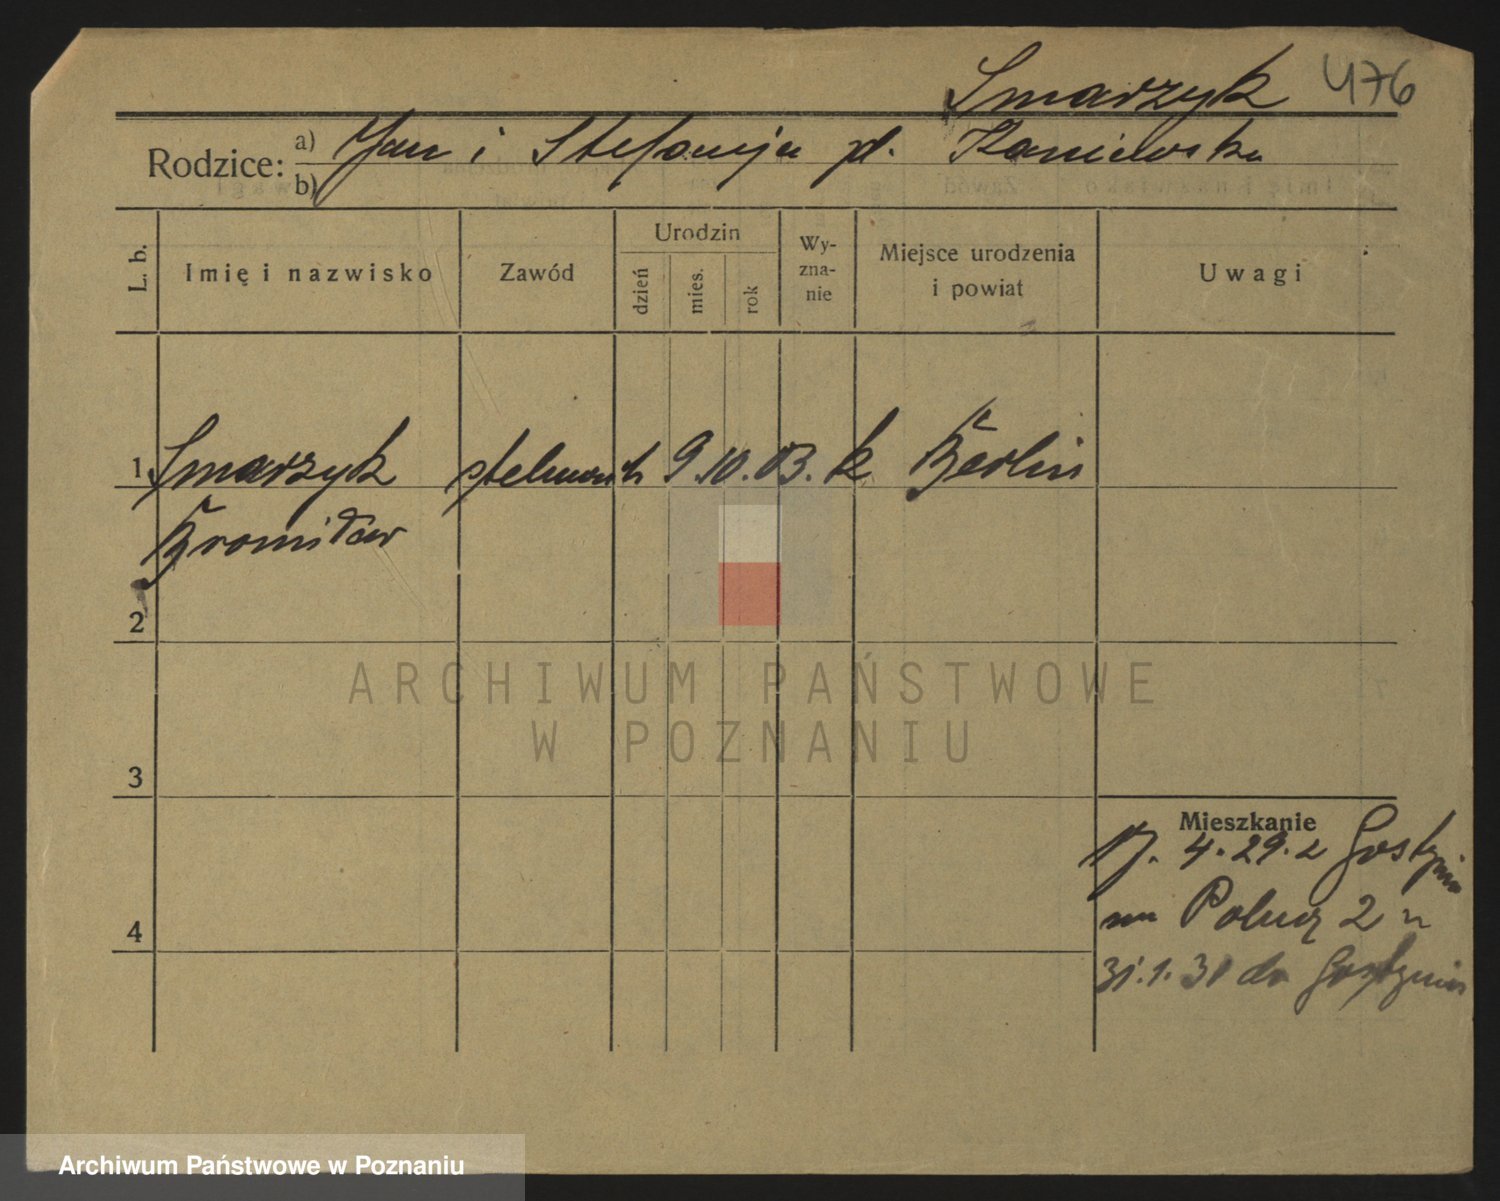 Smarzyk 476
Rodzice: a) Jan i Stefanja d. Kaniewska
b)
L. b.
Imię i nazwisko
Zawód
Urodzin
dzień
mies.
rok
Wy-
zna-
nie
Miejsce urodzenia
i powiat
Uwagi
1 Smarzyk stelmach 9.10.03. k Berlin
Bronisław
2
ARCHIWUM PAŃSTWOWE
W POZNANIU
3
Mieszkanie
4.29. z Gostynia
na 2
4
31.1.31 do Gostynia
Archiwum Państwowe w Poznaniu